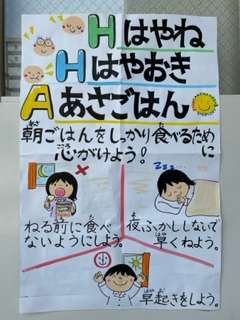 Hはやね
Hはやおき
Aあさごはん
朝ごはんをしっかり食べるために
心がけよう!
zzz...
ねる前に食べ
ないようにしよう。
夜ふかししないで
早くねよう。
早起きをしよう。